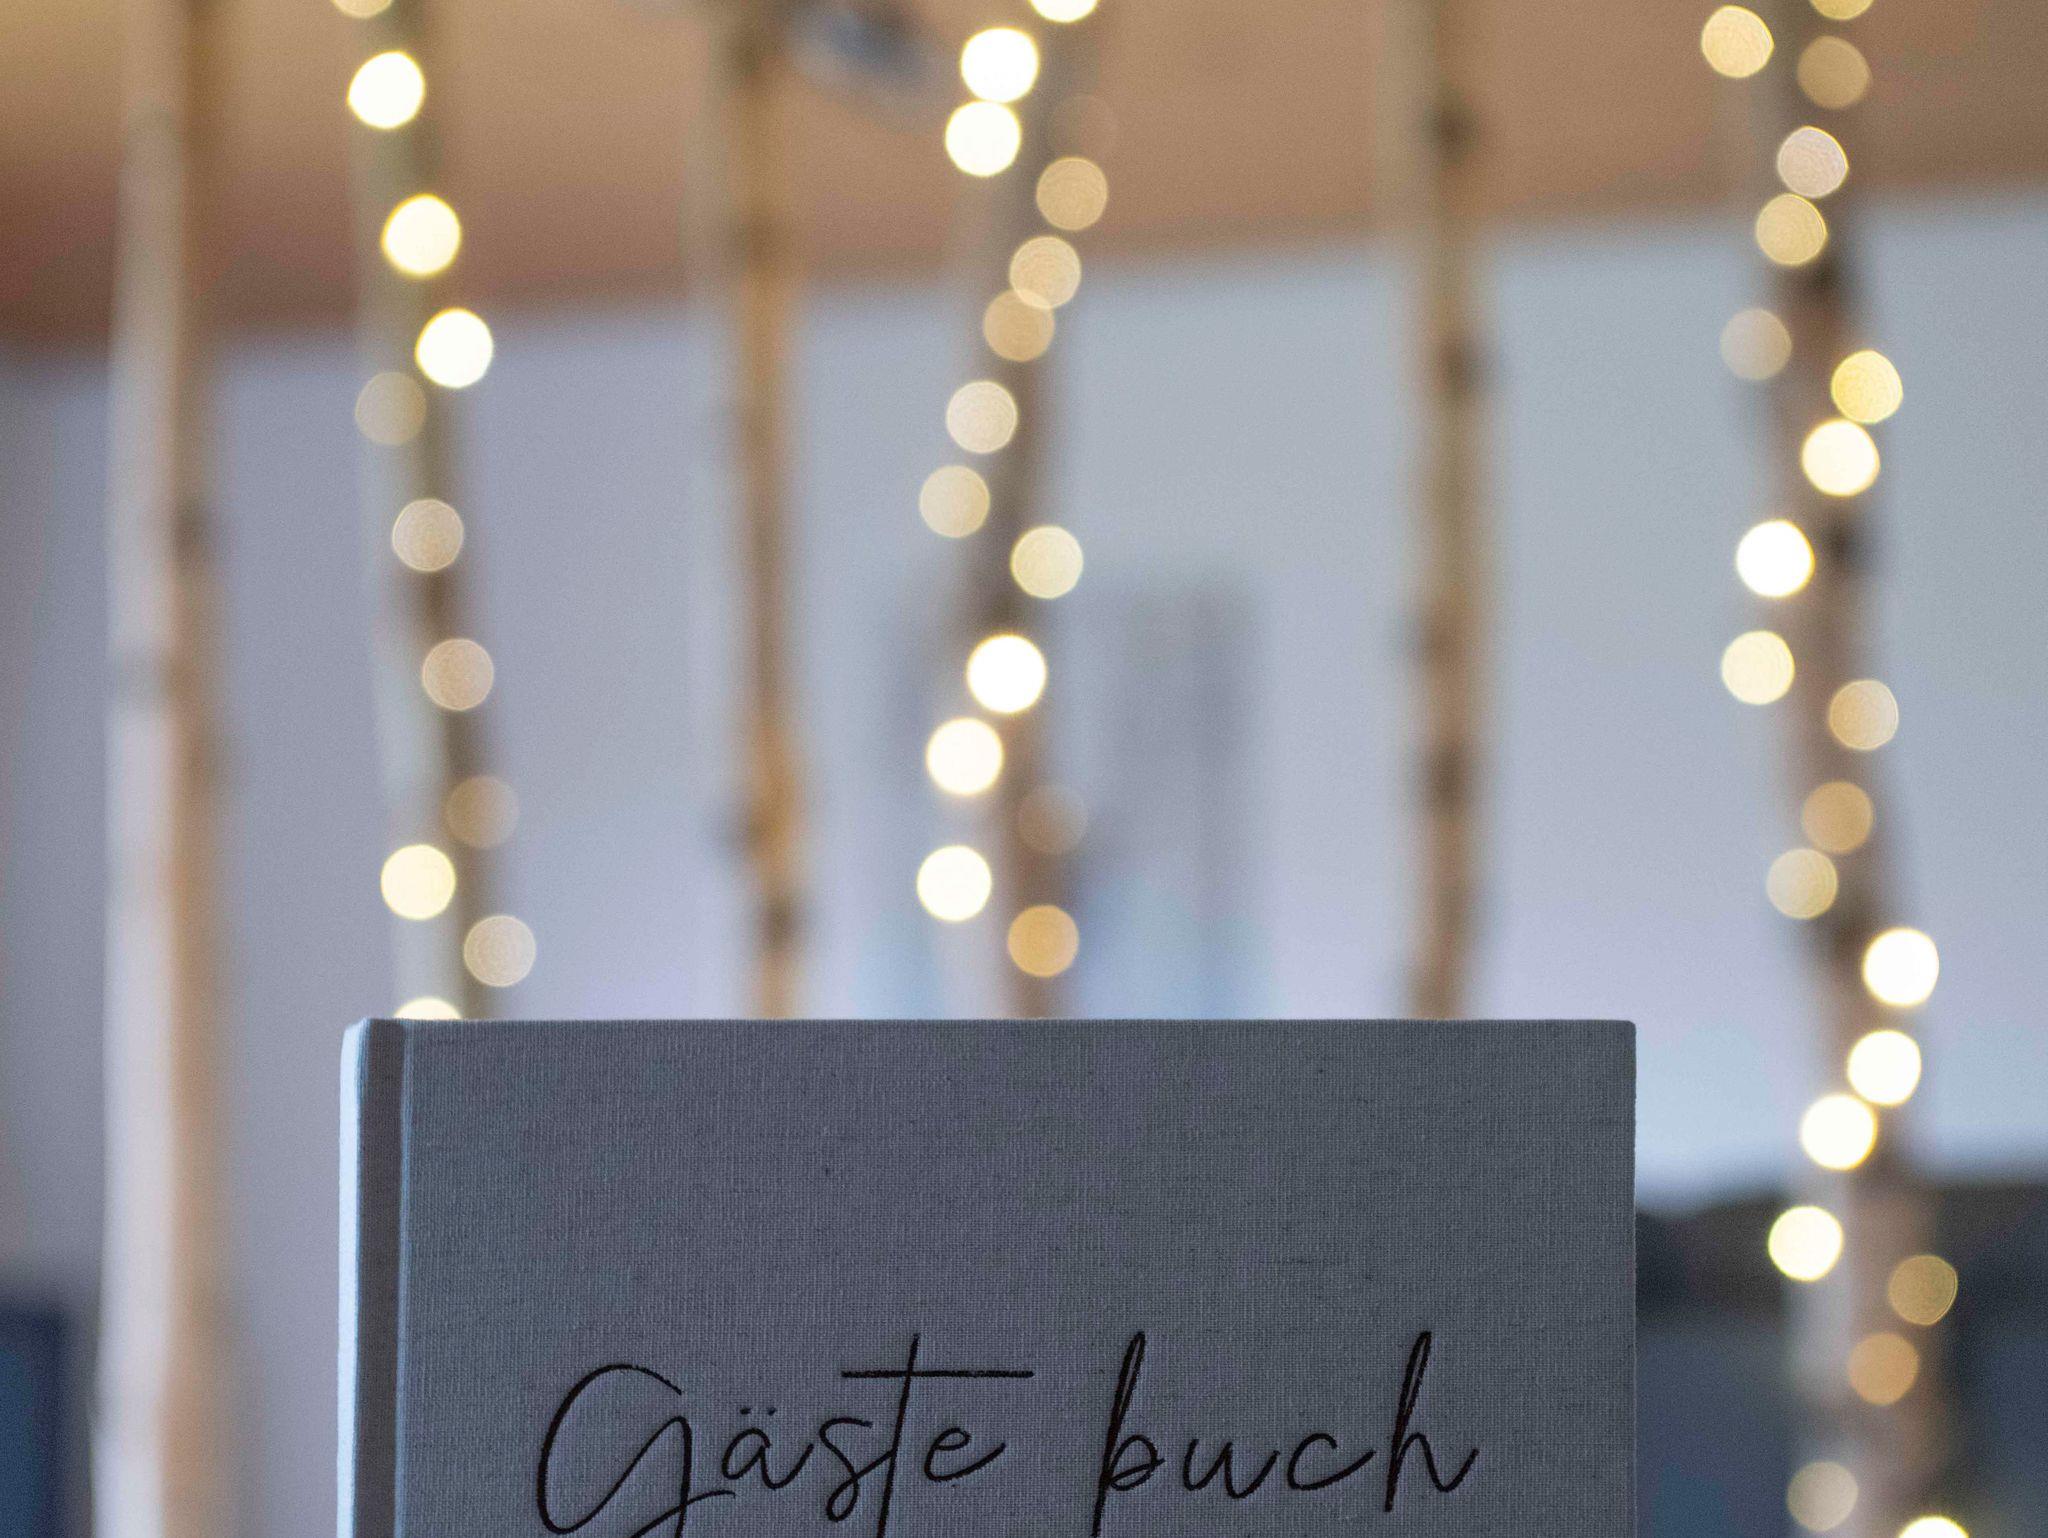 Gäste buch